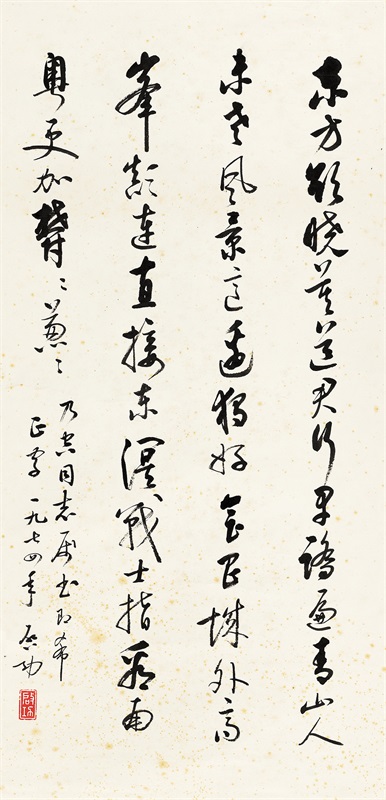 东方欲晓莫道君行早踏遍青山人
未老风景这边独好会昌城外高
峯颠连直接东溟戰士指看南
粤更加欝〻蔥〻
同志属书即希
正字一九七四年启功
启功